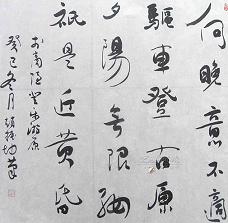 向晚意不適
驅車登古原
夕陽無限好
祇是近黃昏
李商隱登樂游原
癸巳冬月